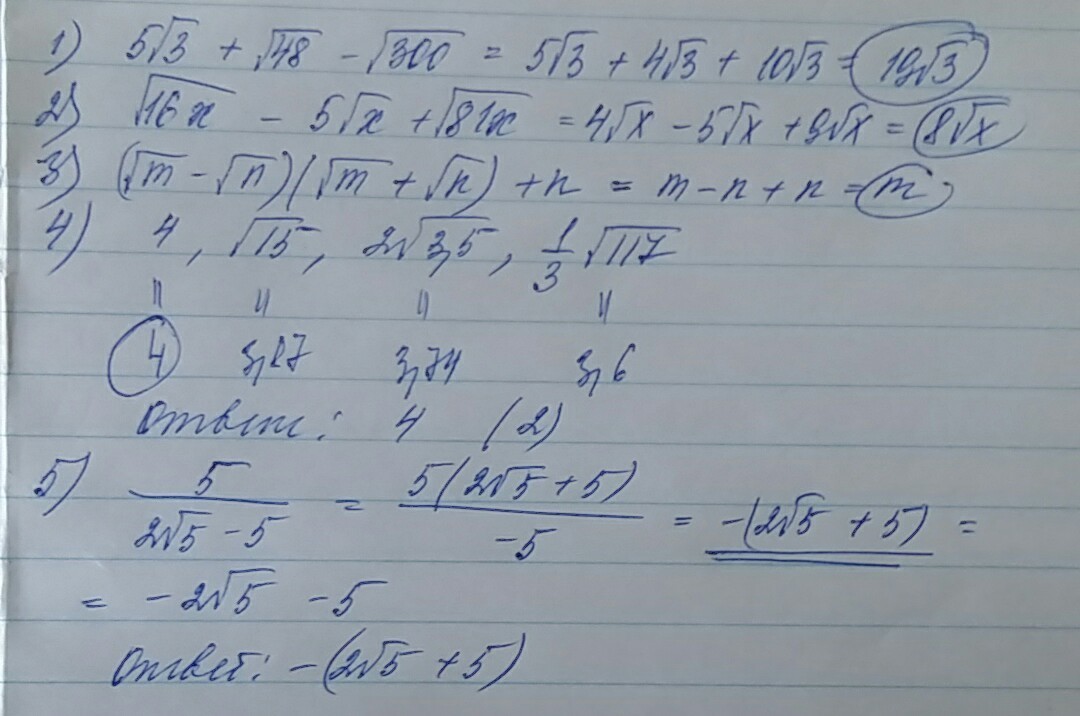 1) 5√3 + √48 - √300 = 5√3 + 4√3 + 10√3 = 19√3
2) √16x - 5√x + √81x = 4√x - 5√x + 9√x = 8√x
3) (√m - √n)(√m + √n) + n = m - n + n = m
4) 4, √15, 2√3,5, 1/3 √117
= = = =
4 3,87 3,74 3,6
Ответ: 4 (2)
5) 5/(2√5 - 5) = 5(2√5 + 5)/-5 = -(2√5 + 5) =
= -2√5 - 5
Ответ: -(2√5 + 5)